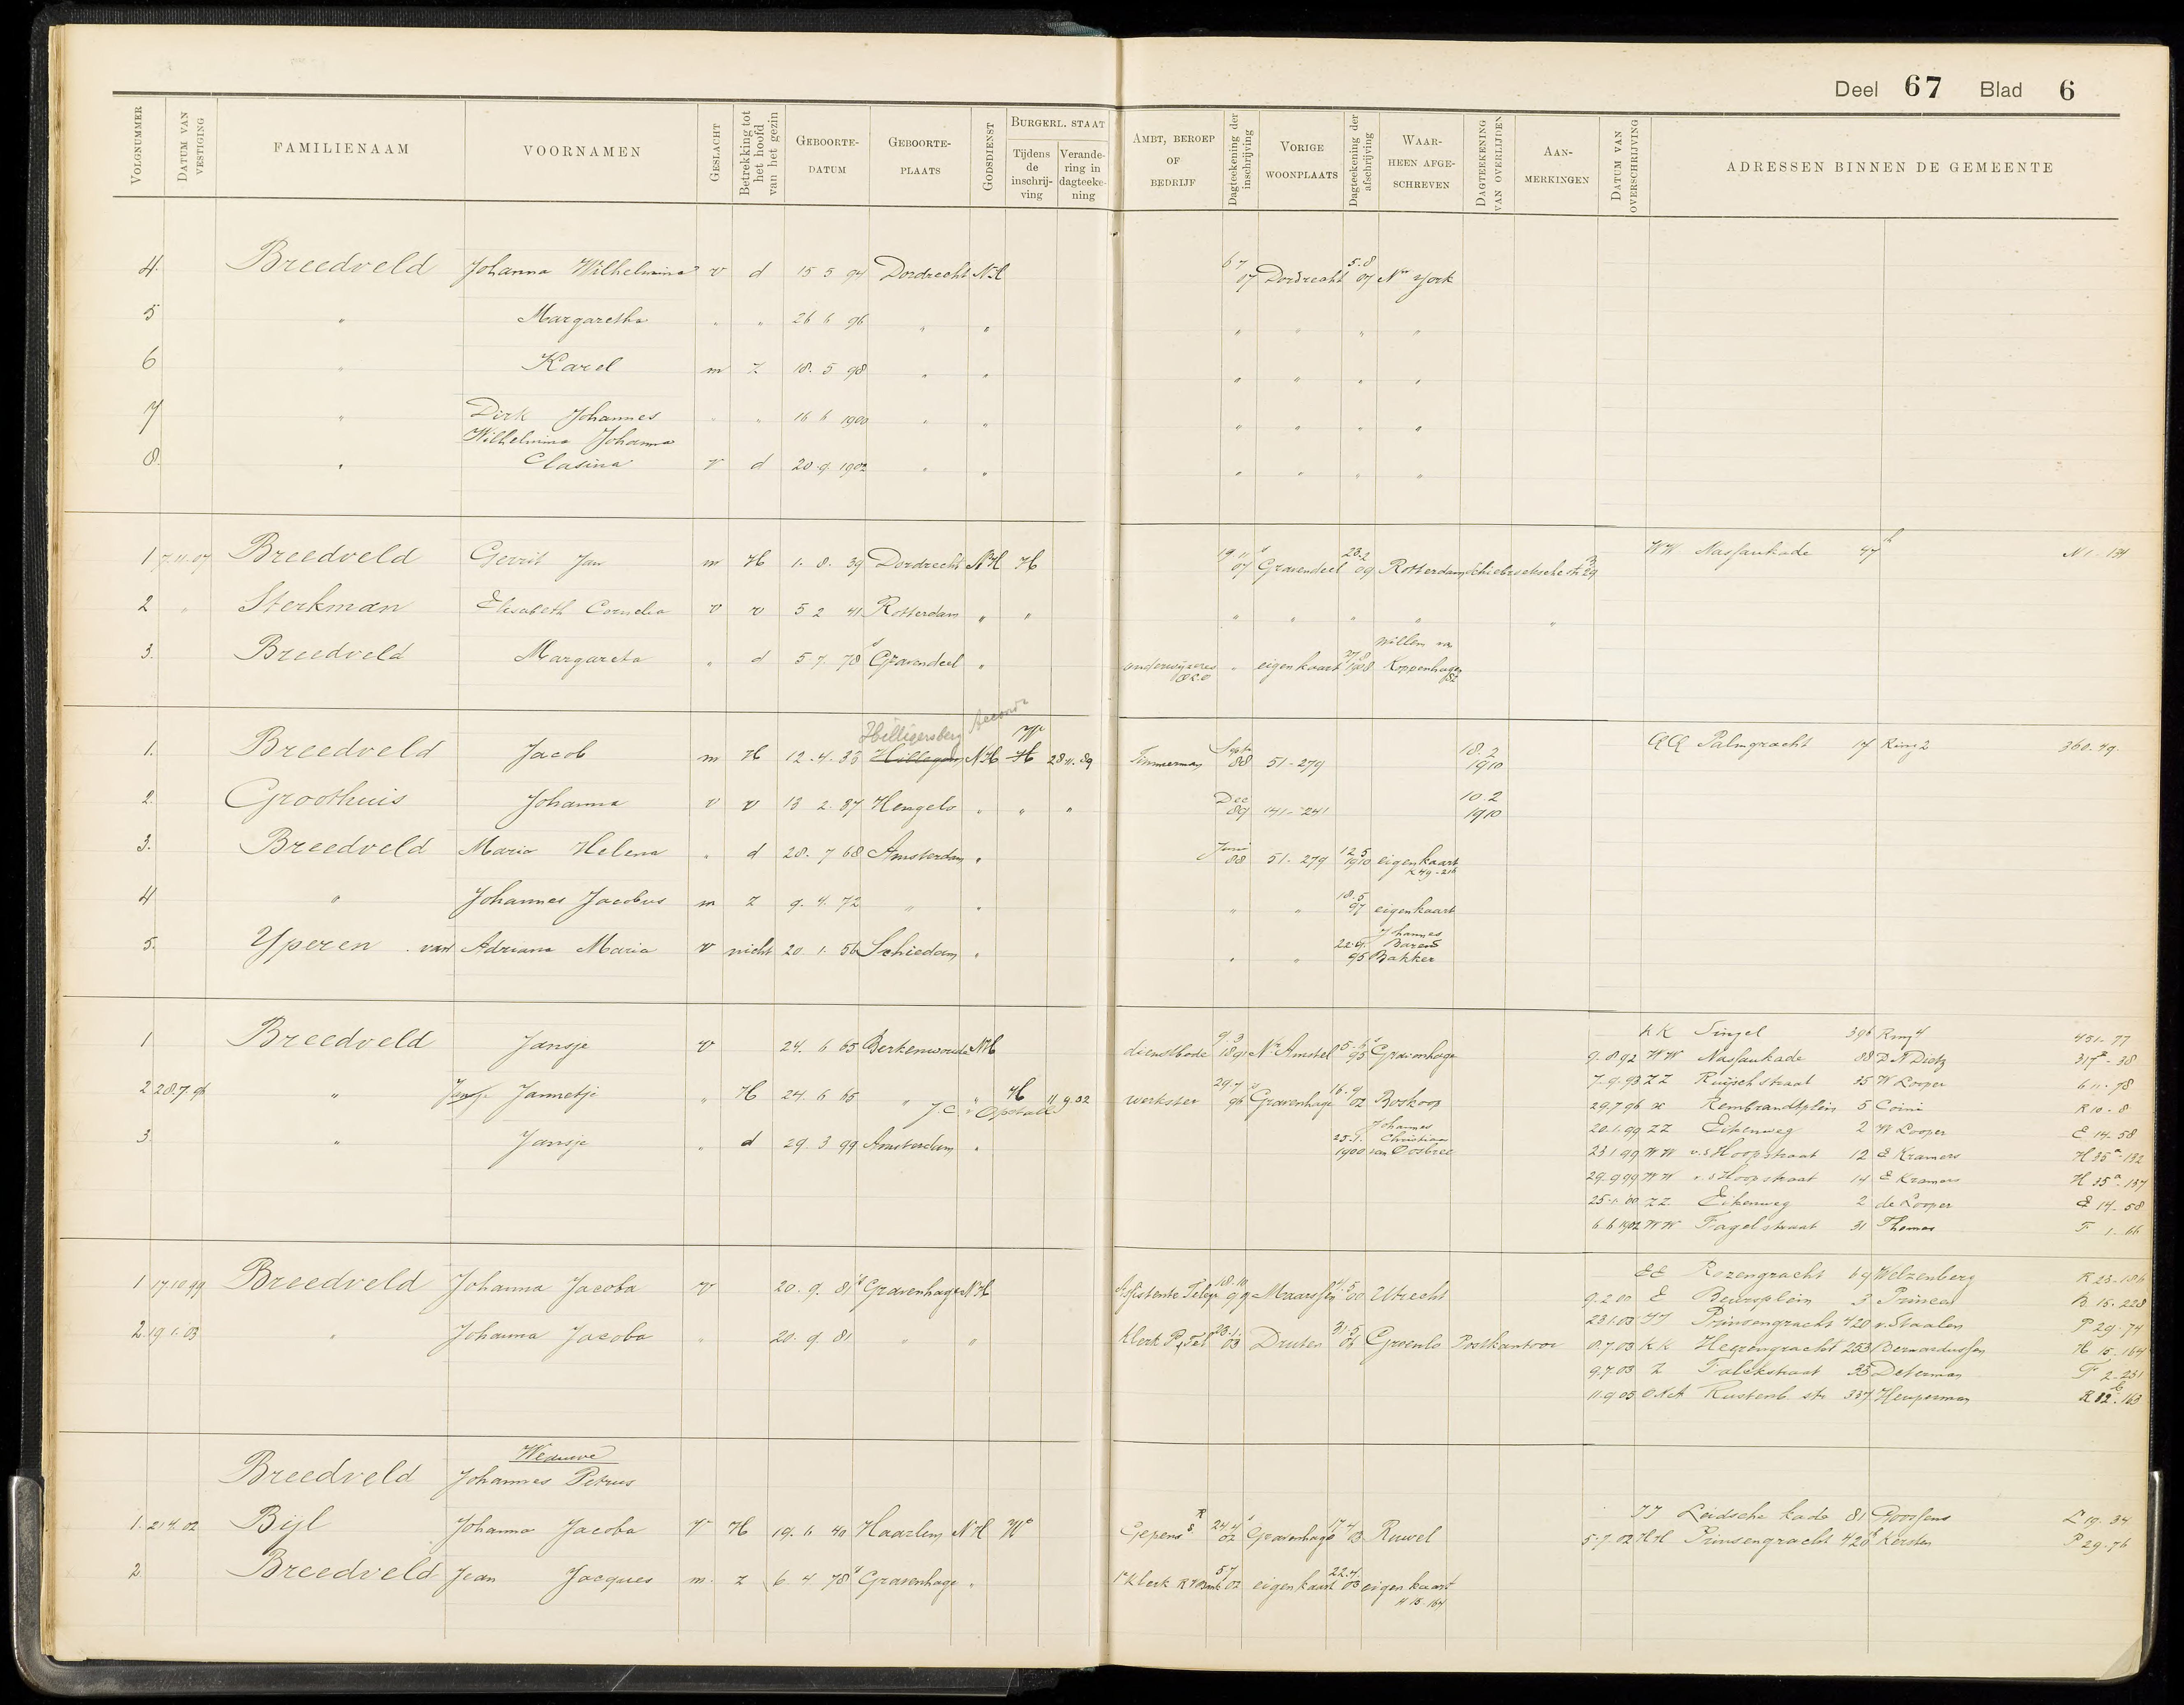 Deel 67 Blad 6
VOLGNUMMER DATUM VAN VESTIGING FAMILIENAAM VOORNAMEN GESLACHT Betrekking tot het hoofd van het gezin GEBOORTE-DATUM GEBOORTE-PLAATS GODSDIENST BURGERL. STAAT Tijdens de inschrij-ving Verande-ring in dagteeke-ning AMBT, BEROEP OF BEDRIJF Dagteekening der inschrijving VORIGE WOONPLAATS Dagteekening der afschrijving WAAR-HEEN AFGE-SCHREVEN DAGTEEKENING VAN OVERLIJDEN AAN-MERKINGEN DATUM VAN OVERSCHRIJVING ADRESSEN BINNEN DE GEMEENTE
4. Breedveld Johanna Wilhelmina v d 15 5 94 Dordrecht NH 6 7 07 Dordrecht 5.8 07 Nw York
5 " Margaretha " " 26 6 96 " " " " " "
6 " Karel m z 18. 5 98 " " " " " "
7 " Dirk Johannes " " 16 6 1900 " " " " " "
Wilhelmina Johanna
8. " Clasina v d 20.9.1902 " " " " " "
1 7.11.07 Breedveld Gerrit Jan m H 1. 8. 39 Dordrecht NH H 19 11 07 s Gravendeel 23.2 09 Rotterdam WW Nassaukade 47 N1-134
2 " Sterkman Elisabeth Cornelia v v 5 2 41 Rotterdam " " " " " " "
3. Breedveld Margareta " d 5 7. 78 s Gravendeel " onderwijzeres " eigen kaart 1908 Willem van Koppenhagen
Hilligersberg
1. Breedveld Jacob m H 12.4.35 Hillegom NH H We 28.11.89 Timmerman Sept 88 51-279 18.2 1910 GG Palmgracht 17 Ring 2 360.49
2. Groothuis Johanna v v 13 2. 37 Hengelo " " " Dec 89 141-241 10.2 1910
3. Breedveld Maria Helena " d 28. 7 68 Amsterdam " Juni 88 51-279 12 5 1910 eigen kaart
4 " Johannes Jacobus m z 9. 4. 72 " " " " 18.5 97 eigen kaart
5. Yperen van Adriana Maria v nicht 20. 1. 56 Schiedam " " " 95 Johannes Barend Bakker
1 Breedveld Jansje v 24. 6 65 Berkenwoude NH dienstbode 9.3 1891 Nr Amstel 95 s Gravenhage KK Singel 396 Ring 4 431-77
9.8.92 WW Nassaukade 88
7.9.93 ZZ Ruijschstraat 35 W Looper 611-78
2 28.7.96 " Jannetje " H 24. 6 65 " " H 11 9.02 werkster 29.7 96 s Gravenhage 16.9 02 Boskoop
J.C. Opstall
29.7 96 Rembrandtplein 5 R10-8
20.1.99 ZZ Eikenweg 2 W Looper E 14-58
3. " Jansje " d 29. 3 99 Amsterdam " 25.1. 1900 Johannes Christiaan van Oosbree
23 1 99 WW v.d Hoopstraat 12 E Kramers H 35a-132
29.9 99 WW v.d Hoopstraat 14 E Kramers H 35a-137
25.1.00 ZZ. Eikenweg 2 de Looper E 14-58
6.6 1902 WW Fagelstraat 31 Thomas F 1-66
1 17 10 99 Breedveld Johanna Jacoba v 20. 9. 81 s Gravenhage NH Assistente Telegr 18.10 99 Maarssen 00 Utrecht EE Rozengracht 69 Welzenberg R 23-186
9.2 00 E Beursplein 3 Princen B 15-228
23.1.03 JJ Prinsengracht 420 v. Staalen P 29-74
2. 19 1. 03 " Johanna Jacoba " 20. 9. 81 " " Klerk P & Tel 23.1. 03 Druten 31.5 06 Groenlo Postkantoor 8.7.03 KK Heerengracht 253 Bernardussen H 15-164
9.7.03 Z Falckstraat 35 Determan F 2-231
11.9 05 Rustenb. str 337 Heuperman R 32-163
Weduwe
Breedveld Johannes Petrus
1. 21.4.02 Bijl Johanna Jacoba v H 19. 6 40 Haarlem NH We Gepens 24.4 02 s Gravenhage 17.4 13 Ruwel JJ Leidsche kade 81 Goossens L 19-34
5.7.02 HH Prinsengracht 426 Kersten P 29-76
2. Breedveld Jean Jacques m. z 6. 4. 78 s Gravenhage " 1e Klerk 5.7 02 eigen kaart 22.7. 03 eigen kaart
H 15-164